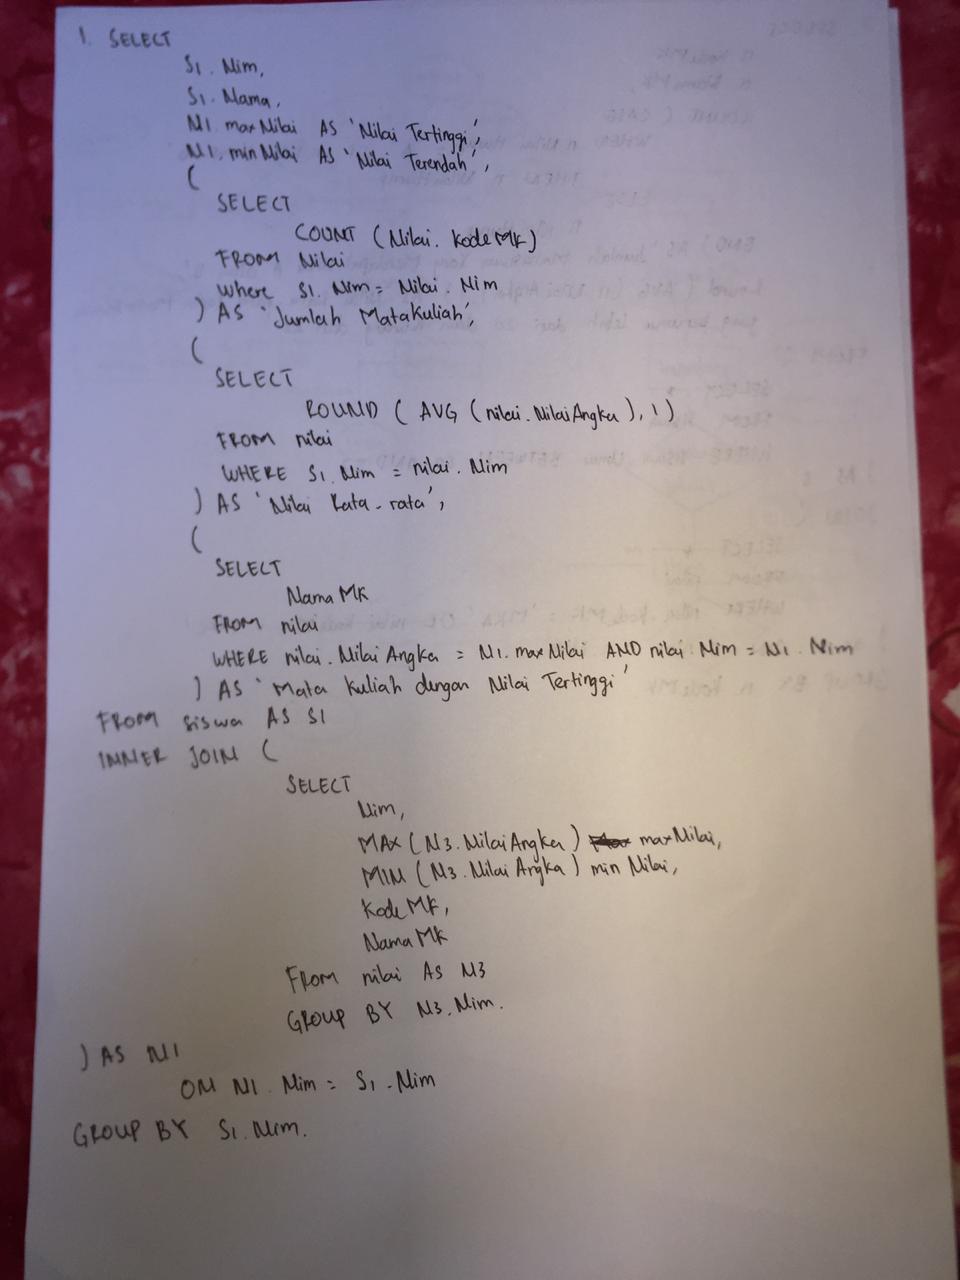 1. SELECT
S1. Nim,
S1. Nama,
N1. maxNilai AS 'Nilai Tertinggi',
N1. minNilai AS 'Nilai Terendah',
(
SELECT
COUNT (Nilai. KodeMK)
FROM Nilai
Where S1. Nim = Nilai. Nim
) AS 'Jumlah MataKuliah',
(
SELECT
ROUND ( AVG (nilai. NilaiAngka), 1)
FROM nilai
WHERE S1. Nim = nilai. Nim
) AS 'Nilai Rata-rata',
(
SELECT
NamaMK
FROM nilai
WHERE nilai. NilaiAngka = N1. maxNilai AND nilai. Nim = N1. Nim
) AS 'Mata Kuliah dengan Nilai Tertinggi'
FROM siswa AS S1
INNER JOIN (
SELECT
Nim,
MAX (N3. NilaiAngka) maxNilai,
MIN (N3. NilaiAngka) minNilai,
KodeMK,
NamaMK
From nilai AS N3
GROUP BY N3. Nim.
) AS N1
ON N1. Nim = S1. Nim
GROUP BY S1. Nim.